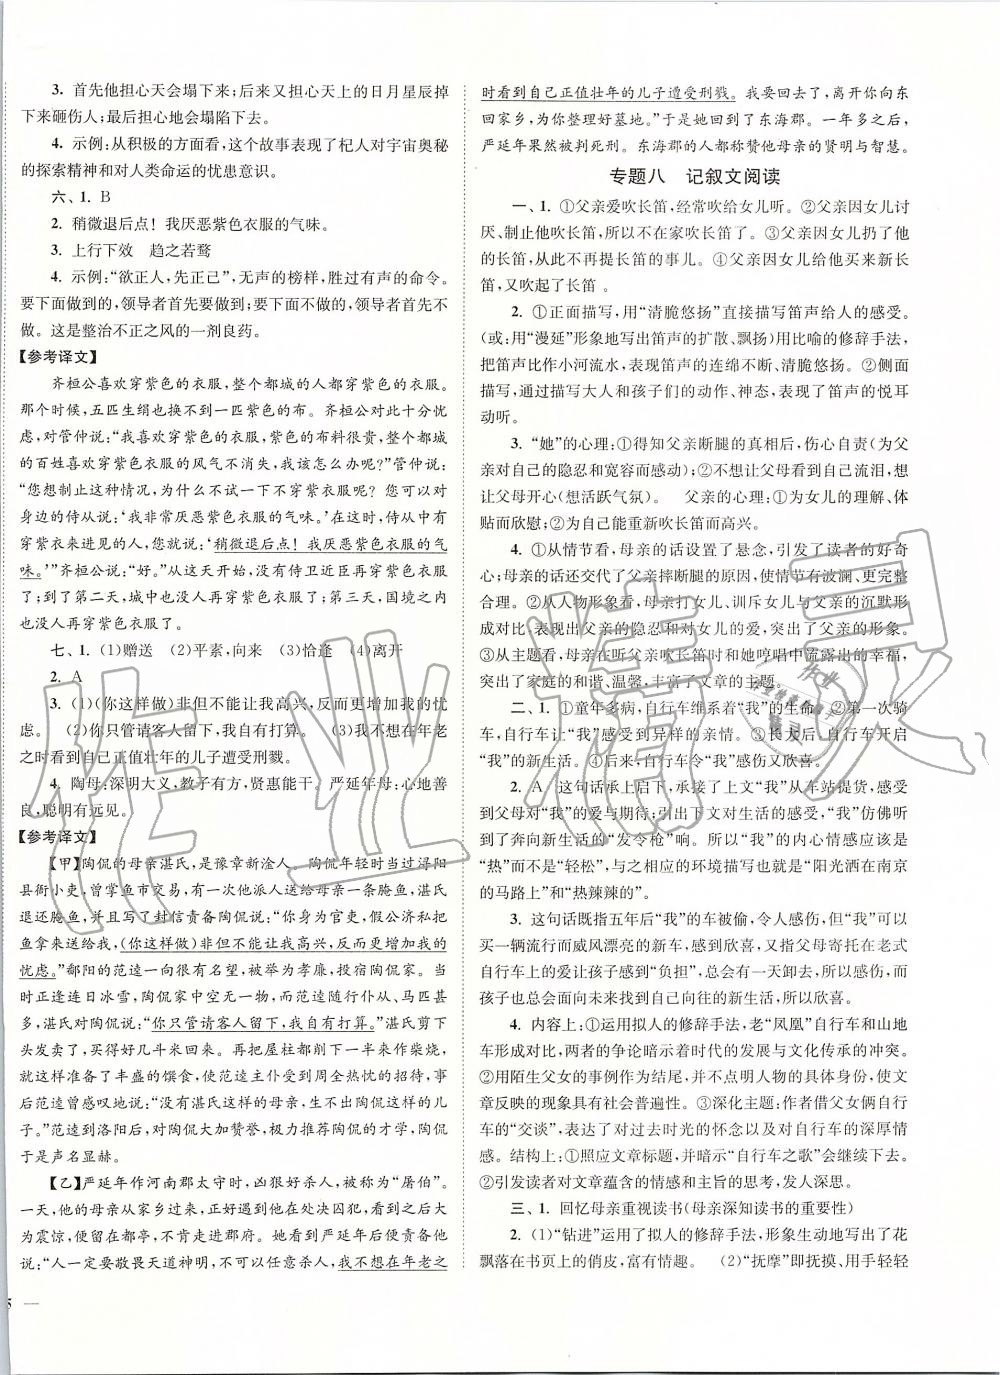 3. 首先他担心天会塌下来;后来又担心天上的日月星辰掉
下来砸伤人;最后担心地会塌陷下去。
4. 示例:从积极的方面看,这个故事表现了杞人对宇宙奥秘
的探索精神和对人类命运的忧患意识。
六、1. B
2. 稍微退后点!我厌恶紫色衣服的气味。
3. 上行下效 趋之若鹜
4. 示例:“欲正人,先正己”,无声的榜样,胜过有声的命令。
要下面做到的,领导者首先要做到;要下面不做的,领导者首先不
做。这是整治不正之风的一剂良药。
【参考译文】
齐桓公喜欢穿紫色的衣服,整个都城的人都穿紫色的衣服。
那个时候,五匹生绢也换不到一匹紫色的布。齐桓公对此十分忧
虑,对管仲说:“我喜欢穿紫色的衣服,紫色的布料很贵,整个都城
的百姓喜欢穿紫色衣服的风气不消失,我该怎么办呢?”管仲说:
“您想制止这种情况,为什么不试一下不穿紫衣服呢?您可以对
身边的侍从说:‘我非常厌恶紫色衣服的气味。’在这时,侍从中有
穿紫衣来进见的人,您就说:‘稍微退后点!我厌恶紫色衣服的气
味。’”齐桓公说:“好。”从这天开始,没有侍卫近臣再穿紫色衣服
了;到了第二天,城中也没人再穿紫色衣服了;第三天,国境之内也
没人再穿紫色衣服了。
七、1. (1)赠送 (2)平素,向来 (3)恰逢 (4)离开
2. A
3. (1)(你这样做)非但不能让我高兴,反而增加了我的忧
虑。 (2)你只管请客人留下,我自有打算。 (3)我不想在年老
之时看到自己正值壮年的儿子遭受刑戮。
4. 陶母:深明大义,教子有方,贤惠能干。严延年母:心地善
良,聪明有远见。
【参考译文】
【甲】陶侃的母亲湛氏,是豫章新淦人。陶侃年轻时当过浔阳
县衙小吏,曾掌鱼市交易,有一次他派人送给母亲一条腌鱼,湛氏
退还腌鱼,又写了封信责备陶侃说:“你身为官吏,假公济私把
鱼拿来送给我,(你这样做)非但不能让我高兴,反而增加了我的
忧虑。”鄱阳的范逵一向很有名望,被举为孝廉,投宿陶侃家。当
时正逢连日冰雪,陶侃家中空无一物,而范逵的仆从、马匹甚
多,湛氏对陶侃说:“你只管请客人留下,我自有打算。”湛氏剪下
头发卖了,买得好几斗米回来。再把屋柱都削下一半来作柴烧,
就这样准备了丰盛的馔食,使范逵主仆受到周全热忱的招待,事
后范逵曾感叹地说:“没有湛氏这样的母亲,生不出陶侃这样的儿
子。”范逵到洛阳后,对陶侃大加赞誉,极力推荐陶侃的才学,陶侃
于是声名显赫。
【乙】严延年作河南郡太守时,凶狠好杀人,被称为“屠伯”。
一天,他的母亲从家乡过来,碰到严延年正在处决囚犯,母亲大
为震惊,便留在都亭,不肯走进郡府。她看到严延年,责备他说:
“人一定要敬畏天道神明,不可以任意杀人,我不想在年老之
时看到自己正值壮年的儿子遭受刑戮。我要回去了,离开你向东
回家乡,为你整理好墓地。”于是她回到了东海郡。一年多之后,
严延年果然被判死刑。东海郡的人都称赞他母亲的贤明与智慧。
专题八 记叙文阅读
一、1. ①父亲爱吹长笛,经常吹给女儿听。②父亲因女儿讨
厌、制止他吹长笛,所以不在家吹长笛了。③父亲因女儿扔了他的
长笛,从此不再提长笛的事儿。④父亲因女儿给他买来新长
笛,又吹起了长笛。
2. ①正面描写,用“清脆悠扬”直接描写笛声给人的感受。
(或:用“漫延”形象地写出笛声的扩散、飘扬)用比喻的修辞手法,
把笛声比作小河流水,表现笛声的连绵不断、清脆悠扬。②侧面
描写,通过描写大人和孩子们的动作、神态,表现了笛声的悦耳
动听。
3. “她”的心理:①得知父亲断腿的真相后,伤心自责(为父
亲对自己的隐忍和宽容而感动);②不想让父母看到自己流泪,想
让父母开心(想活跃气氛)。 父亲的心理:①为女儿的理解、体
贴而欣慰;②为自己能重新吹长笛而高兴。
4. ①从情节看,母亲的话设置了悬念,引发了读者的好奇
心;母亲的话还交代了父亲摔断腿的原因,使情节有波澜、更完整
合理。②从人物形象看,母亲打女儿、训斥女儿与父亲的沉默形
成对比,表现出父亲的隐忍和对女儿的爱,突出了父亲的形象。
③从主题看,母亲在听父亲吹长笛时和她哼唱中流露出的幸福,
突出了家庭的和谐、温馨,丰富了文章的主题。
二、1. ①童年多病,自行车维系着“我”的生命。②第一次骑
车,自行车让“我”感受到异样的亲情。③长大后,自行车开启
“我”的新生活。④后来,自行车令“我”又感伤又欣喜。
2. A 这句话承上启下,承接了上文“我”从车站提货,感受
到父母对“我”的爱与期待;引出下文对生活的感受,“我”仿佛听
到了奔向新生活的“发令枪”响。所以,“我”的内心情感应该是
“热”而不是“轻松”,与之相应的环境描写也就是“阳光洒在南京
的马路上”和“热辣辣的”。
3. 这句话既指五年后“我”的车被偷,令人感伤,但“我”可以
买一辆流行而威风漂亮的新车,感到欣喜;又指父母寄托在老式
自行车上的爱让孩子感到“负担”,总有一天会卸去,所以感伤,而
孩子总会面向未来找到自己向往的新生活,所以欣喜。
4. 内容上:①运用拟人的修辞手法,老“凤凰”自行车和山地
车形成对比,两者的争论暗示着时代的发展与文化传承的冲突。
②用陌生父女的事例作为结尾,并不点明人物的具体身份,使文
章反映的现象具有社会普遍性。③深化主题:作者借父女俩自行
车的“交谈”,表达了对过去时光的怀念以及对自行车的深厚情
感。 结构上:①照应文章标题,并暗示“自行车之歌”会继续下去。
②引发读者对文章蕴含的情感和主旨的思考,发人深思。
三、1. 回忆母亲重视读书(母亲深知读书的重要性)
2. (1)“钻进”运用了拟人的修辞手法,形象生动地写出了花
飘落在书页上的俏皮,富有情趣。 (2)“抚摩”即抚摸、用手轻轻
5 —